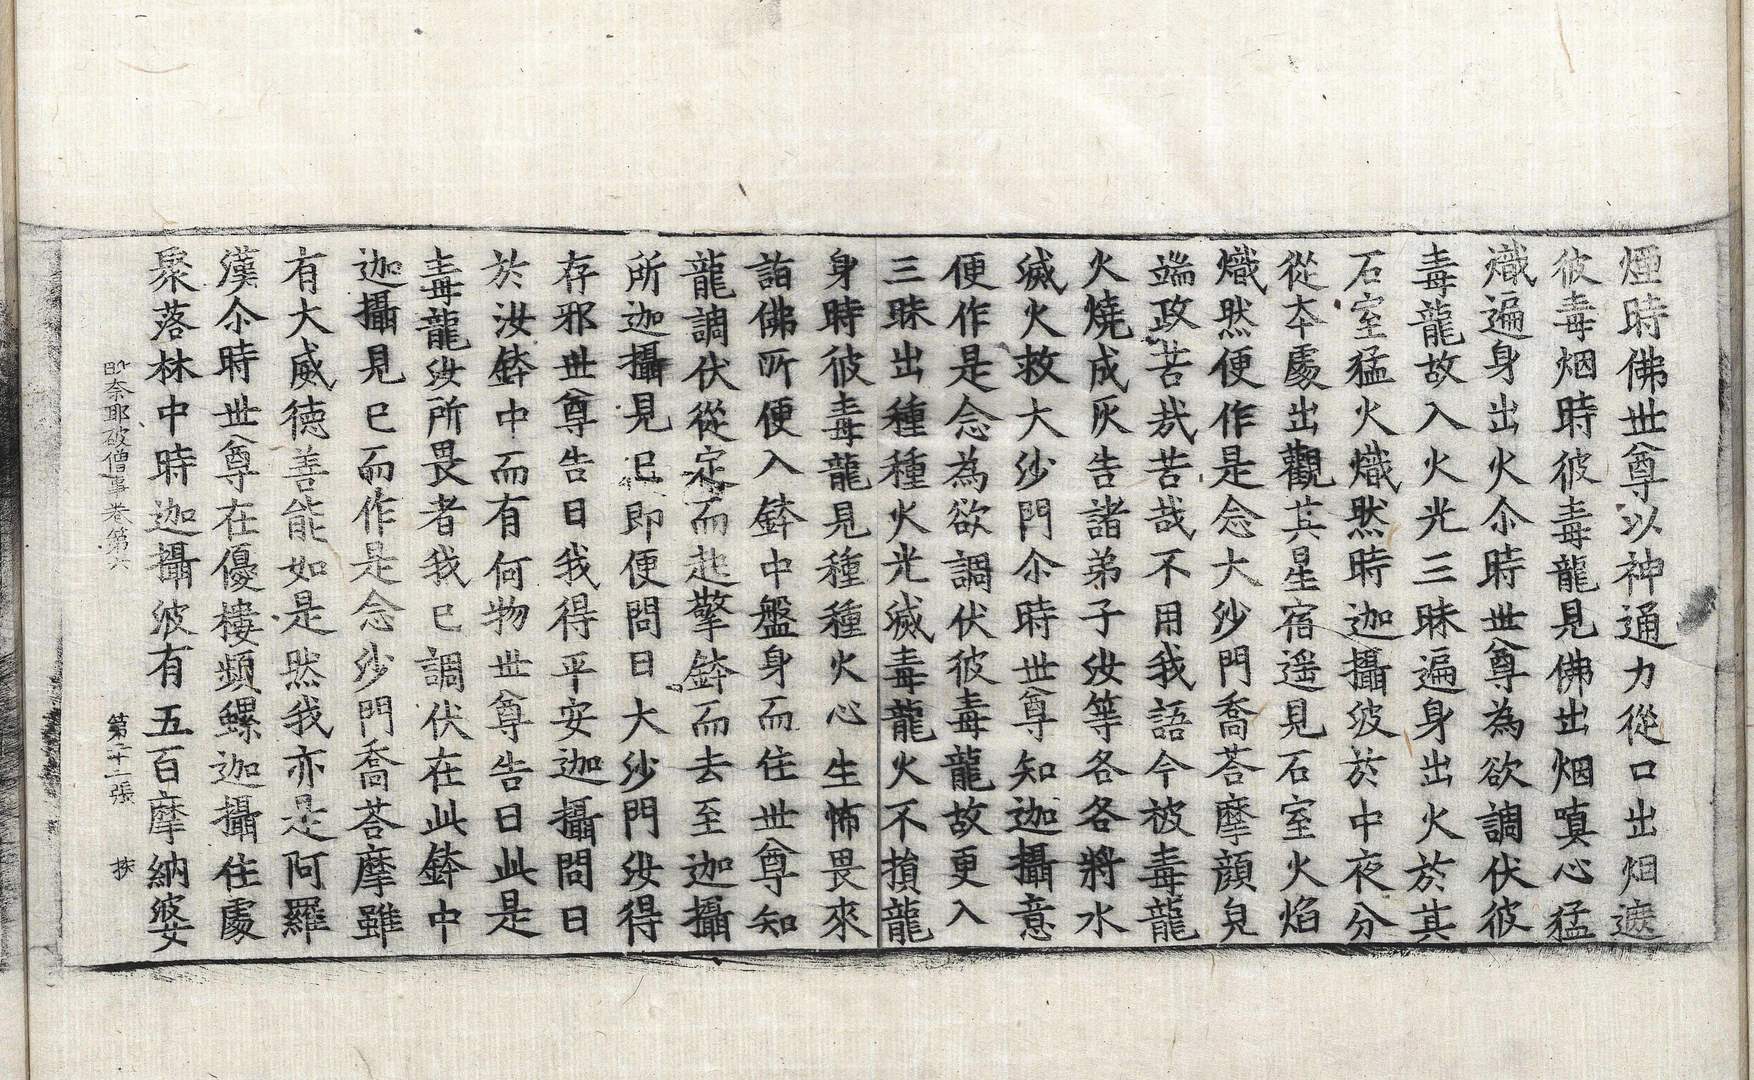 煙時佛世尊以神通力從口出烟遮
彼毒烟時彼毒龍見佛出烟嗔心猛
熾遍身出火尒時世尊為欲調伏彼
毒龍故入火光三昧遍身出火於其
石室猛火熾然時迦攝波於中夜分
從本處出觀其星宿遥見石室火焰
熾然便作是念大沙門喬荅摩顔皃
端政苦哉苦哉不用我語今被毒龍
火燒成灰告諸弟子汝等各各將水
滅火救大沙門尒時世尊知迦攝意
便作是念為欲調伏彼毒龍故更入
三昧出種種火光滅毒龍火不損龍
身時彼毒龍見種種火心生怖畏來
詣佛所便入鉢中盤身而住世尊知
龍調伏從定而起擎鉢而去至迦攝
所迦攝見已即便問曰大沙門汝得
存邪世尊告曰我得平安迦攝問曰
於汝鉢中而有何物世尊告曰此是
毒龍汝所畏者我已調伏在此鉢中
迦攝見已而作是念沙門喬荅摩雖
有大威德善能如是然我亦是阿羅
漢尒時世尊在優樓頻螺迦攝住處
聚落林中時迦攝波有五百摩納婆
毗奈耶破僧事卷第六 第二十二張 㧑